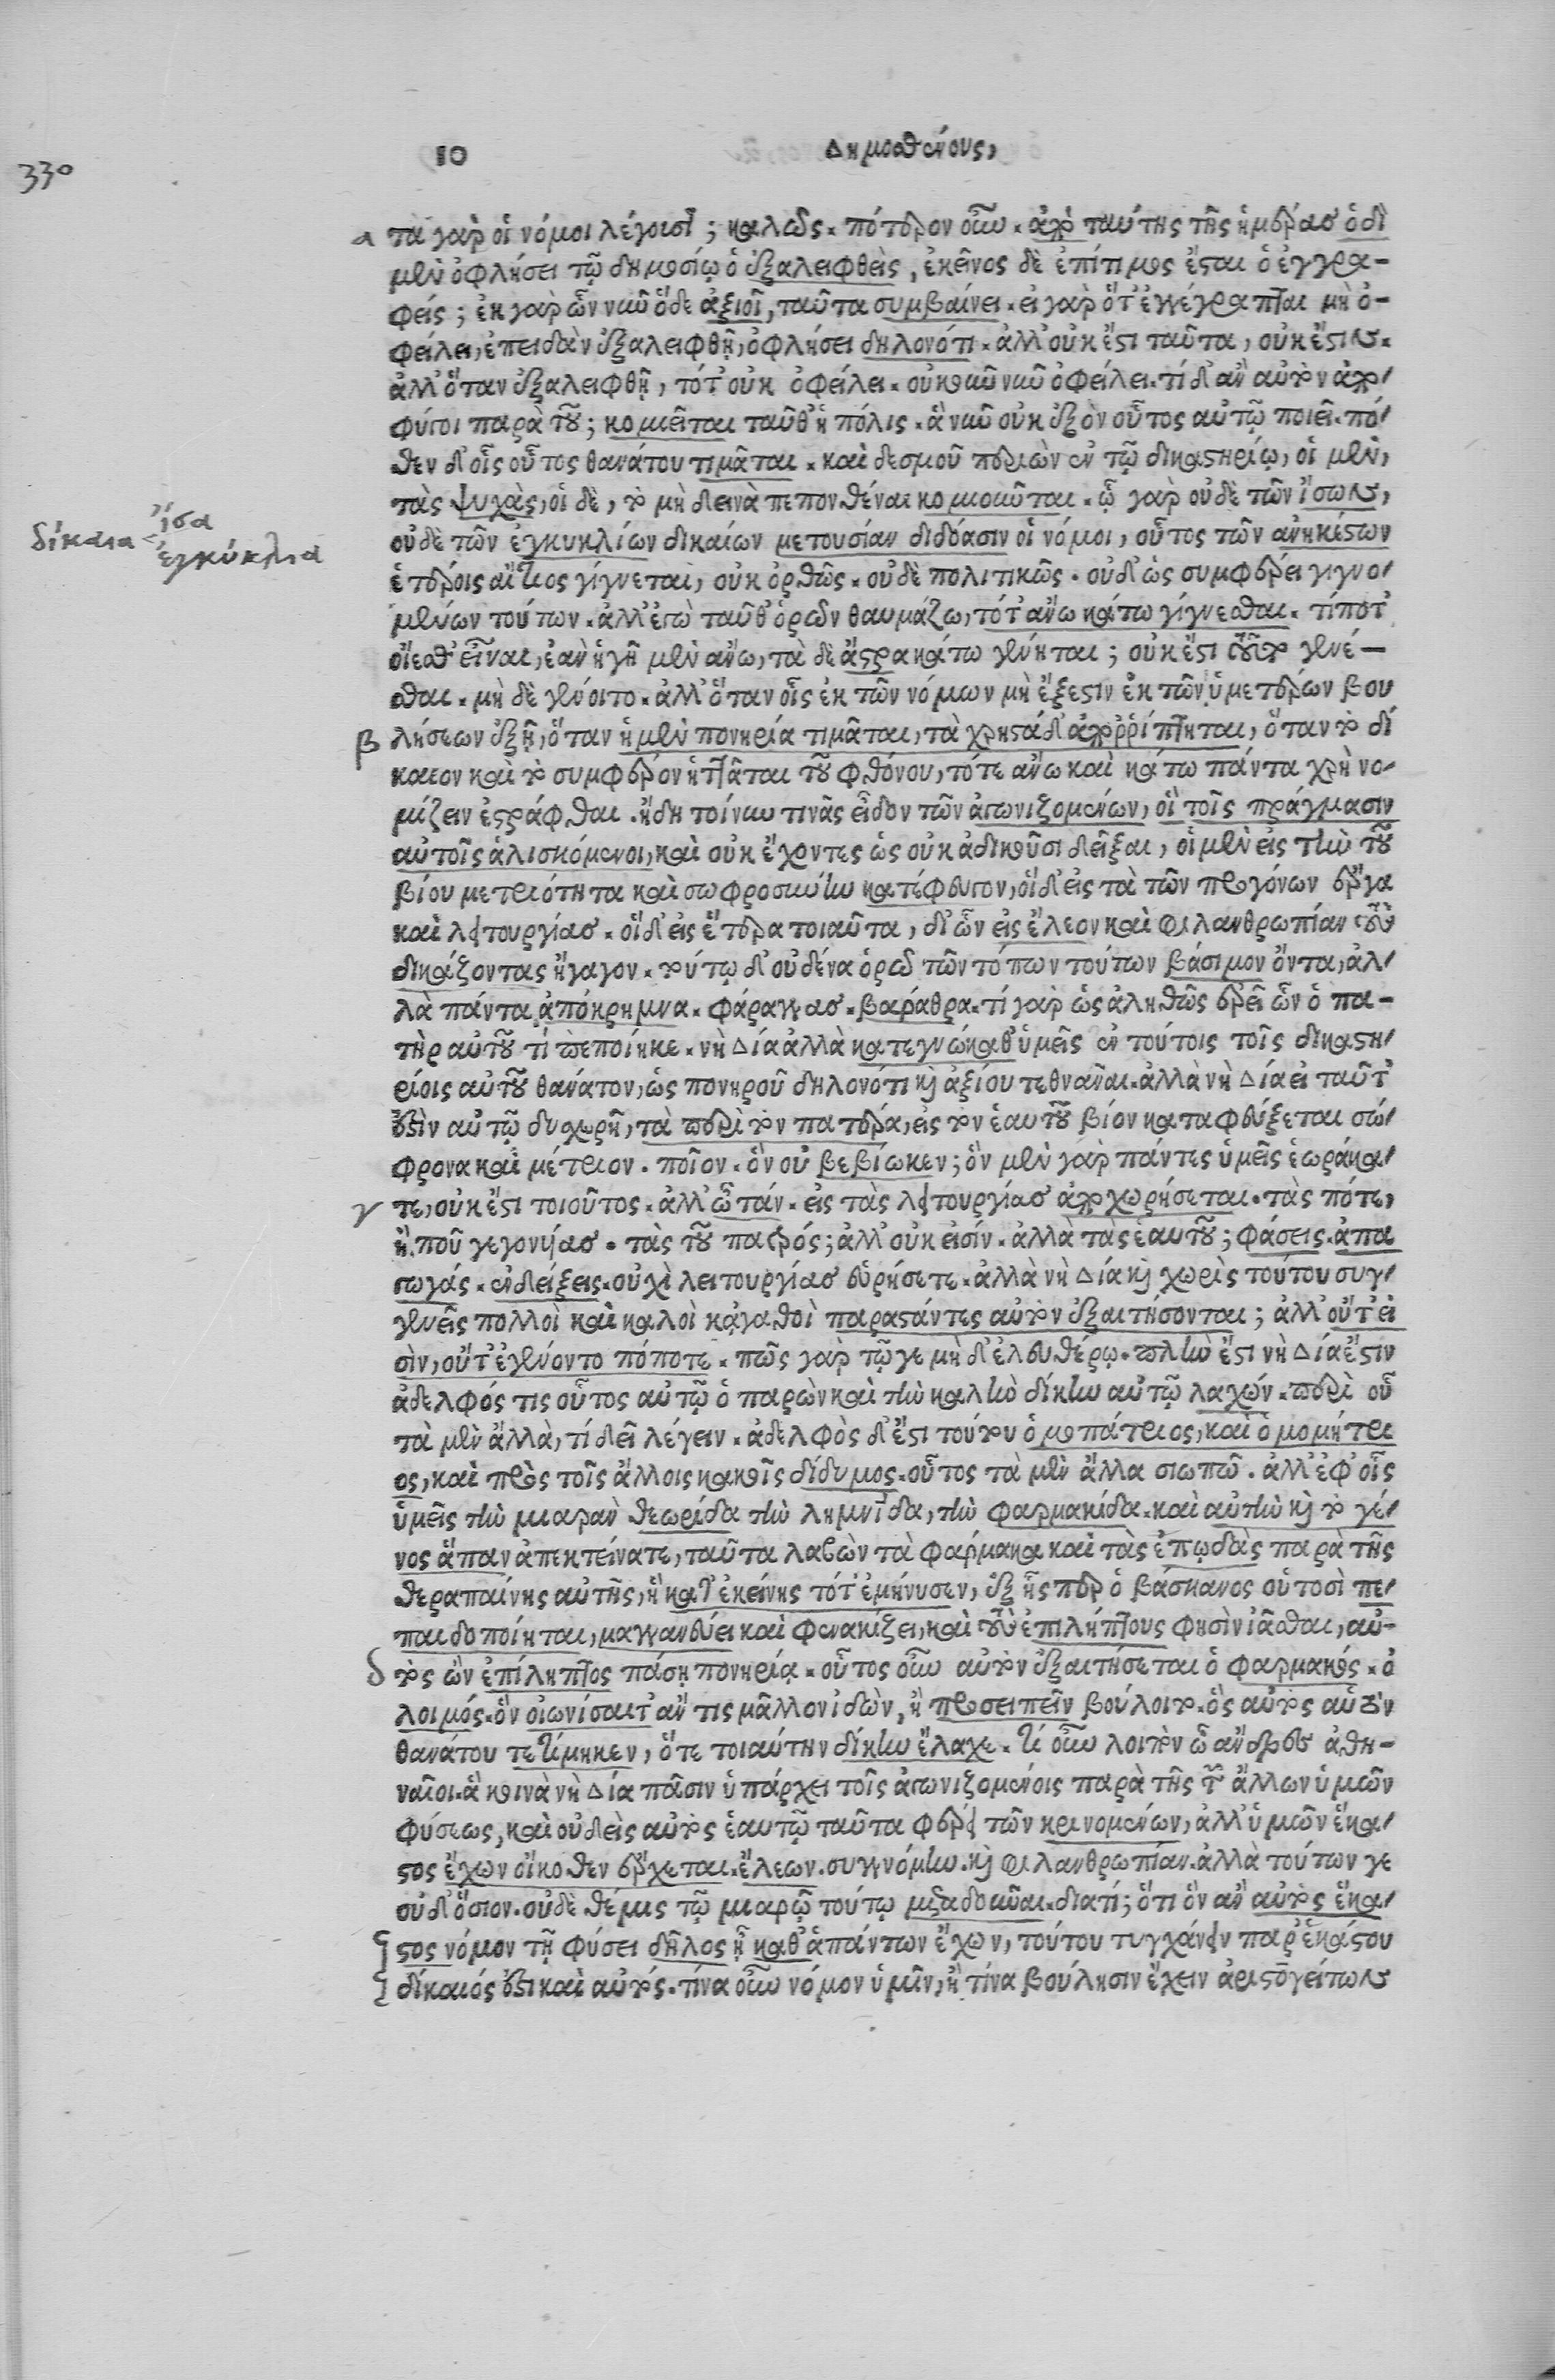 330
10 Δημοσθένους,
α τα γὰρ οἱ νόμοι λέγουσι; καλῶς. πότερον οὖν. ἀπὸ ταύτης τῆς ἡμέρας ὁδὶ
μὲν ὀφλήσει τῷ δημοσίῳ ὁ ἐξαλειφθεὶς, ἐκεῖνος δὲ ἐπίτιμος ἔσται ὁ ἐγγρα-
φείς; ἐκ γὰρ ὧν νῦν ὅδε ἀξιοῖ, ταῦτα συμβαίνει. εἰ γὰρ ὅτ' ἐγγέγραπται μὴ ὀ-
φείλει, ἐπειδὰν ἐξαλειφθῇ, ὀφλήσει δηλονότι. ἀλλ' οὐκ ἔστι ταῦτα, οὐκ ἔστιν.
ἀλλ' ὅταν ἐξαλειφθῇ, τότ' οὐκ ὀφείλει. οὐκοῦν νῦν ὀφείλει. τί δ' ἂν αὐτὸν ἀπο
φύγοι παρὰ τοῦ; κομιεῖται ταῦθ' ἡ πόλις. ἃ νῦν οὐκ ἐξὸν οὗτος αὐτῷ ποιεῖ. πό
θεν δ' οἷς οὗτος θανάτου τιμᾶται. καὶ δεσμοῦ περιιὼν ἐν τῷ δικαστηρίῳ, οἱ μὲν,
τὰς ψυχὰς, οἱ δὲ, τὸ μὴ δεινὰ πεπονθέναι κομιοῦνται. ᾧ γὰρ οὐδὲ τῶν ἴσων,
δίκαια < ἴσα
ἐγκύκλια
οὐδὲ τῶν ἐγκυκλίων δικαίων μετουσίαν διδόασιν οἱ νόμοι, οὗτος τῶν ἀνηκέστων
ἑτέροις αἴτιος γίγνεται, οὐκ ὀρθῶς. οὐδὲ πολιτικῶς. οὐδ' ὡς συμφέρει γιγνο
μένων τούτων. ἀλλ' ἐγὼ ταῦθ' ὁρῶν θαυμάζω, τότ' ἄνω κάτω γίγνεσθαι. τί ποτ'
οἴεσθ' εἶναι, ἐὰν ἡ γῆ μὲν ἄνω, τὰ δὲ ἄστρα κάτω γένηται; οὐκ ἔστι τοῦτο γενέ-
σθαι. μὴ δὲ γένοιτο. ἀλλ' ὅταν οἷς ἐκ τῶν νόμων μὴ ἔξεστιν ἐκ τῶν ὑμετέρων βου
β λήσεων ἐξῇ, ὅταν ἡ μὲν πονηρία τιμᾶται, τὰ χρηστὰ δ' ἀπορρίπτηται, ὅταν τὸ δί
καιον καὶ τὸ συμφέρον ἡττᾶται τοῦ φθόνου, τότε ἄνω καὶ κάτω πάντα χρὴ νο
μίζειν ἐστράφθαι. ἤδη τοίνυν τινὰς εἶδον τῶν ἀγωνιζομένων, οἳ τοῖς πράγμασιν
αὐτοῖς ἁλισκόμενοι, καὶ οὐκ ἔχοντες ὡς οὐκ ἀδικοῦσι δεῖξαι, οἱ μὲν εἰς τὴν τοῦ
βίου μετριότητα καὶ σωφροσύνην κατέφυγον, οἱ δ' εἰς τὰ τῶν προγόνων ἔργα
καὶ λειτουργίας. οἱ δ' εἰς ἕτερα τοιαῦτα, δι' ὧν εἰς ἔλεον καὶ φιλανθρωπίαν τοὺς
δικάζοντας ἤγαγον. τούτῳ δ' οὐδένα ὁρῶ τῶν τόπων τούτων βάσιμον ὄντα, ἀλ
λὰ πάντα ἀπόκρημνα. φάραγγας. βάραθρα. τί γὰρ ὡς ἀληθῶς ἐρεῖ ὧν ὁ πα-
τὴρ αὐτοῦ τί πεποίηκε. νὴ Δία ἀλλὰ κατεγνώκαθ' ὑμεῖς ἐν τούτοις τοῖς δικαστη
ρίοις αὐτοῦ θανάτον, ὡς πονηροῦ δηλονότι καὶ ἀξίου τεθνᾶναι. ἀλλὰ νὴ Δία εἰ ταῦτ'
ἐστὶν αὐτῷ δυσχερῆ, τὰ περὶ τὸν πατέρα, εἰς τὸν ἑαυτοῦ βίον καταφεύξεται σώ
φρονα καὶ μέτριον. ποῖον. ὃν οὗ βεβίωκεν; ὃν μὲν γὰρ πάντες ὑμεῖς ἑωράκα
γ τε, οὐκ ἔστι τοιοῦτος. ἀλλ' ὦ τάν. εἰς τὰς λειτουργίας ἀποχωρήσεται. τὰς πότε,
ἢ ποῦ γεγονυίας. τὰς τοῦ πατρός; ἀλλ' οὐκ εἰσίν. ἀλλὰ τὰς ἑαυτοῦ; φάσεις. ἀπα
γωγάς. ἐνδείξεις. οὐχὶ λειτουργίας εὑρήσετε. ἀλλὰ νὴ Δία καὶ χωρὶς τούτου συγ
γενεῖς πολλοὶ καὶ καλοὶ κἀγαθοὶ παραστάντες αὐτὸν ἐξαιτήσονται; ἀλλ' οὔτ' εἰ
σὶν, οὔτ' ἐγένοντο πόποτε. πῶς γὰρ τῷ γε μὴ δ' ἐλευθέρῳ. πλὴν ἔστι νὴ Δία ἔστιν
ἀδελφός τις οὗτος αὐτῷ ὁ παρὼν καὶ τὴν καλὴν δίκην αὐτῷ λαχών. περὶ οὗ
τὰ μὲν ἄλλα, τί δεῖ λέγειν. ἀδελφὸς δ' ἔστι τούτου ὁμοπάτριος, καὶ ὁμομήτρι
ος, καὶ πρὸς τοῖς ἄλλοις κακοῖς δίδυμος. οὗτος τὰ μὲν ἄλλα σιωπῶ. ἀλλ' ἐφ' οἷς
ὑμεῖς τὴν μιαρὰν θεωρίδα τὴν λημνίδα, τὴν φαρμακίδα. καὶ αὐτὴν καὶ τὸ γέ
νος ἅπαν ἀπεκτείνατε, ταῦτα λαβὼν τὰ φάρμακα καὶ τὰς ἐπῳδὰς παρὰ τῆς
θεραπαίνης αὐτῆς, ἣ κατ' ἐκείνης τότ' ἐμήνυσεν, ἐξ ἧς περ ὁ βάσκανος οὑτοσὶ πε
παιδοποίηται, μαγγανεύει καὶ φενακίζει, καὶ τοὺς ἐπιλήπτους φησὶν ἰᾶσθαι, αὐ-
δ τὸς ὢν ἐπίληπτος πάσῃ πονηρίᾳ. οὗτος οὖν αὐτὸν ἐξαιτήσεται ὁ φαρμακός. ὁ
λοιμός. ὃν οἰωνίσαιτ' ἄν τις μᾶλλον ἰδὼν, ἢ προσειπεῖν βούλοιτο. ὃς αὐτὸς αὑτὸν
θανάτου τετίμηκεν, ὅτε τοιαύτην δίκην ἔλαχε. τί οὖν λοιπὸν ὦ ἄνδρες ἀθη-
ναῖοι. ἃ κοινὰ νὴ Δία πᾶσιν ὑπάρχει τοῖς ἀγωνιζομένοις παρὰ τῆς τῶν ἄλλων ὑμῶν
φύσεως, καὶ οὐδεὶς αὐτὸς ἑαυτῷ ταῦτα φέρει τῶν κρινομένων, ἀλλ' ὑμῶν ἕκα
στος ἔχων οἴκοθεν ἔρχεται. ἔλεων. συγγνόμην. καὶ φιλανθρωπίαν. ἀλλὰ τούτων γε
οὐδ' ὅσιον. οὐδὲ θέμις τῷ μιαρῷ τούτῳ μεταδοῦναι. διατί; ὅτι ὃν ἂν αὐτὸς ἕκα
στος νόμον τῇ φύσει δῆλος ᾖ καθ' ἁπάντων ἔχων, τούτου τυγχάνειν παρ' ἑκάστου
δίκαιός ἐστι καὶ αὐτός. τίνα οὖν νόμον ὑμῖν, ἢ τίνα βούλησιν ἔχειν ἀριστογείτων